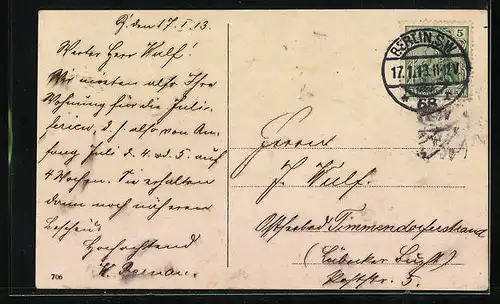 B. den 17.I.13.
Werter Herr Wulf!
Wir mieten also Ihre
Wohnung für die Juli-
ferien, d. h. also von An-
fang Juli d. 4. od. 5. auf
4 Wochen. Sie erhalten
dann noch näheren
Bescheid
Hochachtend
706
5
BERLIN S.W.
17.1.13. 11-12V.
* 68
Herrn
J. Wulf.
Ostseebad Timmendorferstrand
(Lübecker Bucht)
Poststr. 5.